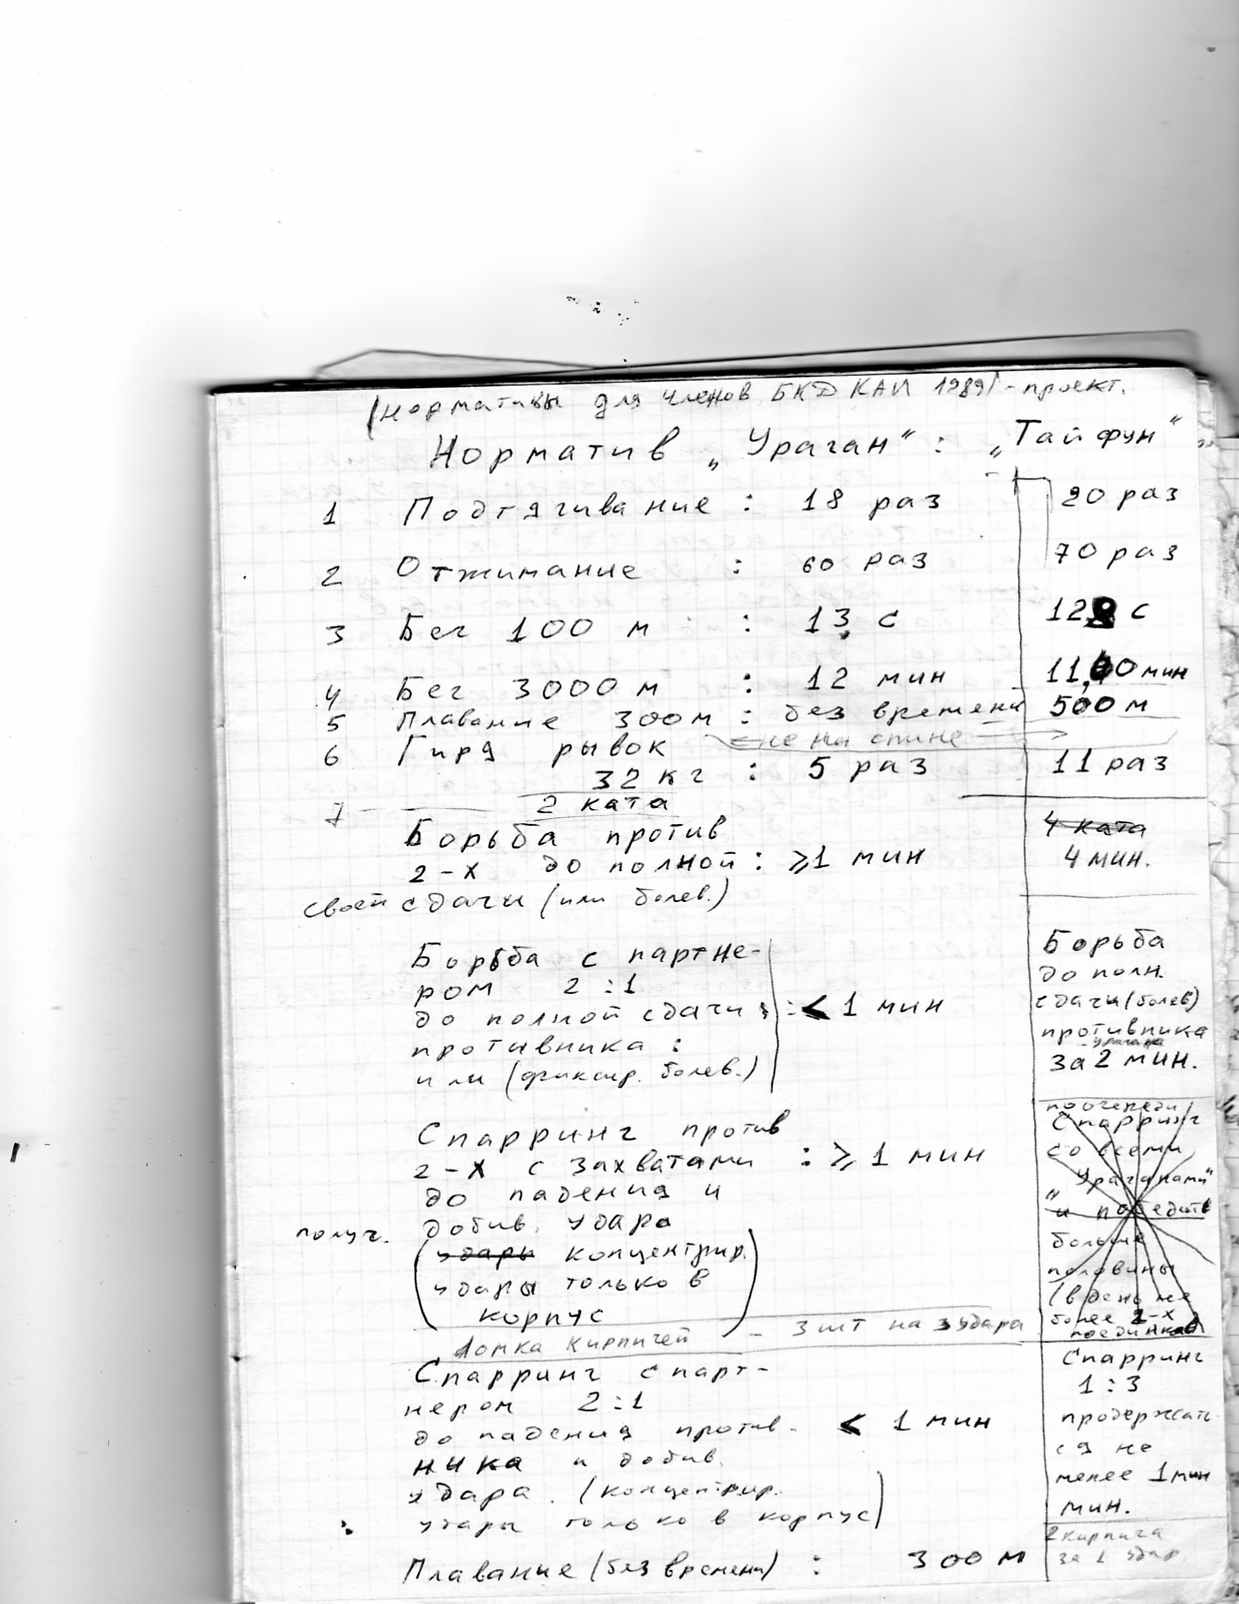 (Нормативы для членов БКД КАИ 1989) - проект.
Норматив „Ураган“ : „Тайфун“
1 Подтягивание : 18 раз 20 раз
2 Отжимание : 60 раз 70 раз
3 Бег 100 м : 13, с 12 с
4 Бег 3000 м : 12 мин 11, 0 мин
5 Плавание 300 м : без времени 500 м
не на спине
6 Гиря рывок
32 кг : 5 раз 11 раз
7 2 ката 4 ката
Борьба против
2-х до полной : ≥1 мин 4 мин.
своей сдачи (или болев.)
Борьба с партне-
ром 2:1
до полной сдачи : < 1 мин
противника :
или (фиксир. болев.)
Борьба
до полн.
сдачи (болев)
противника
за 2 мин.
Спарринг против
2-х с захватами : ≥ 1 мин
до падения и
получ. добив. удара
(удары концентрир.
удары только в
корпус)
поочереди
Спарринг
со всеми
„Ураганами“
и победить
больше
половины
(в день не
более 2-х
поединков)
Ломка кирпичей - 3 шт на 3 удара
Спарринг с парт-
нером 2:1
до падения против- < 1 мин
ника и добив.
удара. (концентрир.
удары только в корпус)
Спарринг
1:3
продержать-
ся не
менее 1 мин
мин.
2 кирпича
за 1 удар
Плавание (без времени) : 300 м